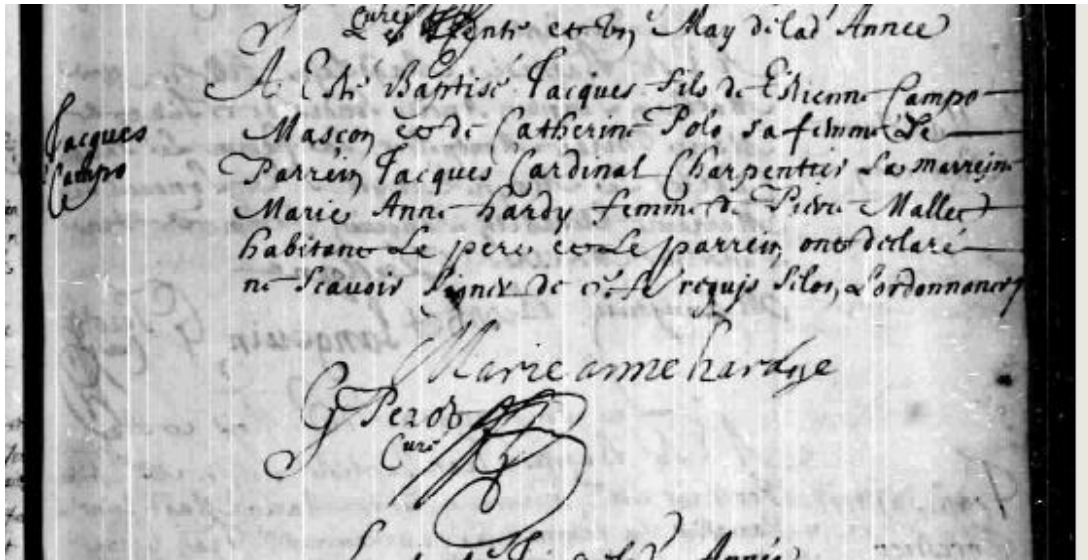 Curé
Le trente et un May de lad Annee
A Esté Baptisé Jacques fils de Estienne Campo
Jacques
Campo
Masçon et de Catherine Polo sa femme Le
Parrein Jacques Cardinal Charpentier La marreine
Marie Anne hardy femme de Pierre Mallet
habitant Le pere et Le parrein ont declaré
ne scavoir signer de ce requis selon L'ordonnance
Marie anne hardye
G Perot
Curé
Année